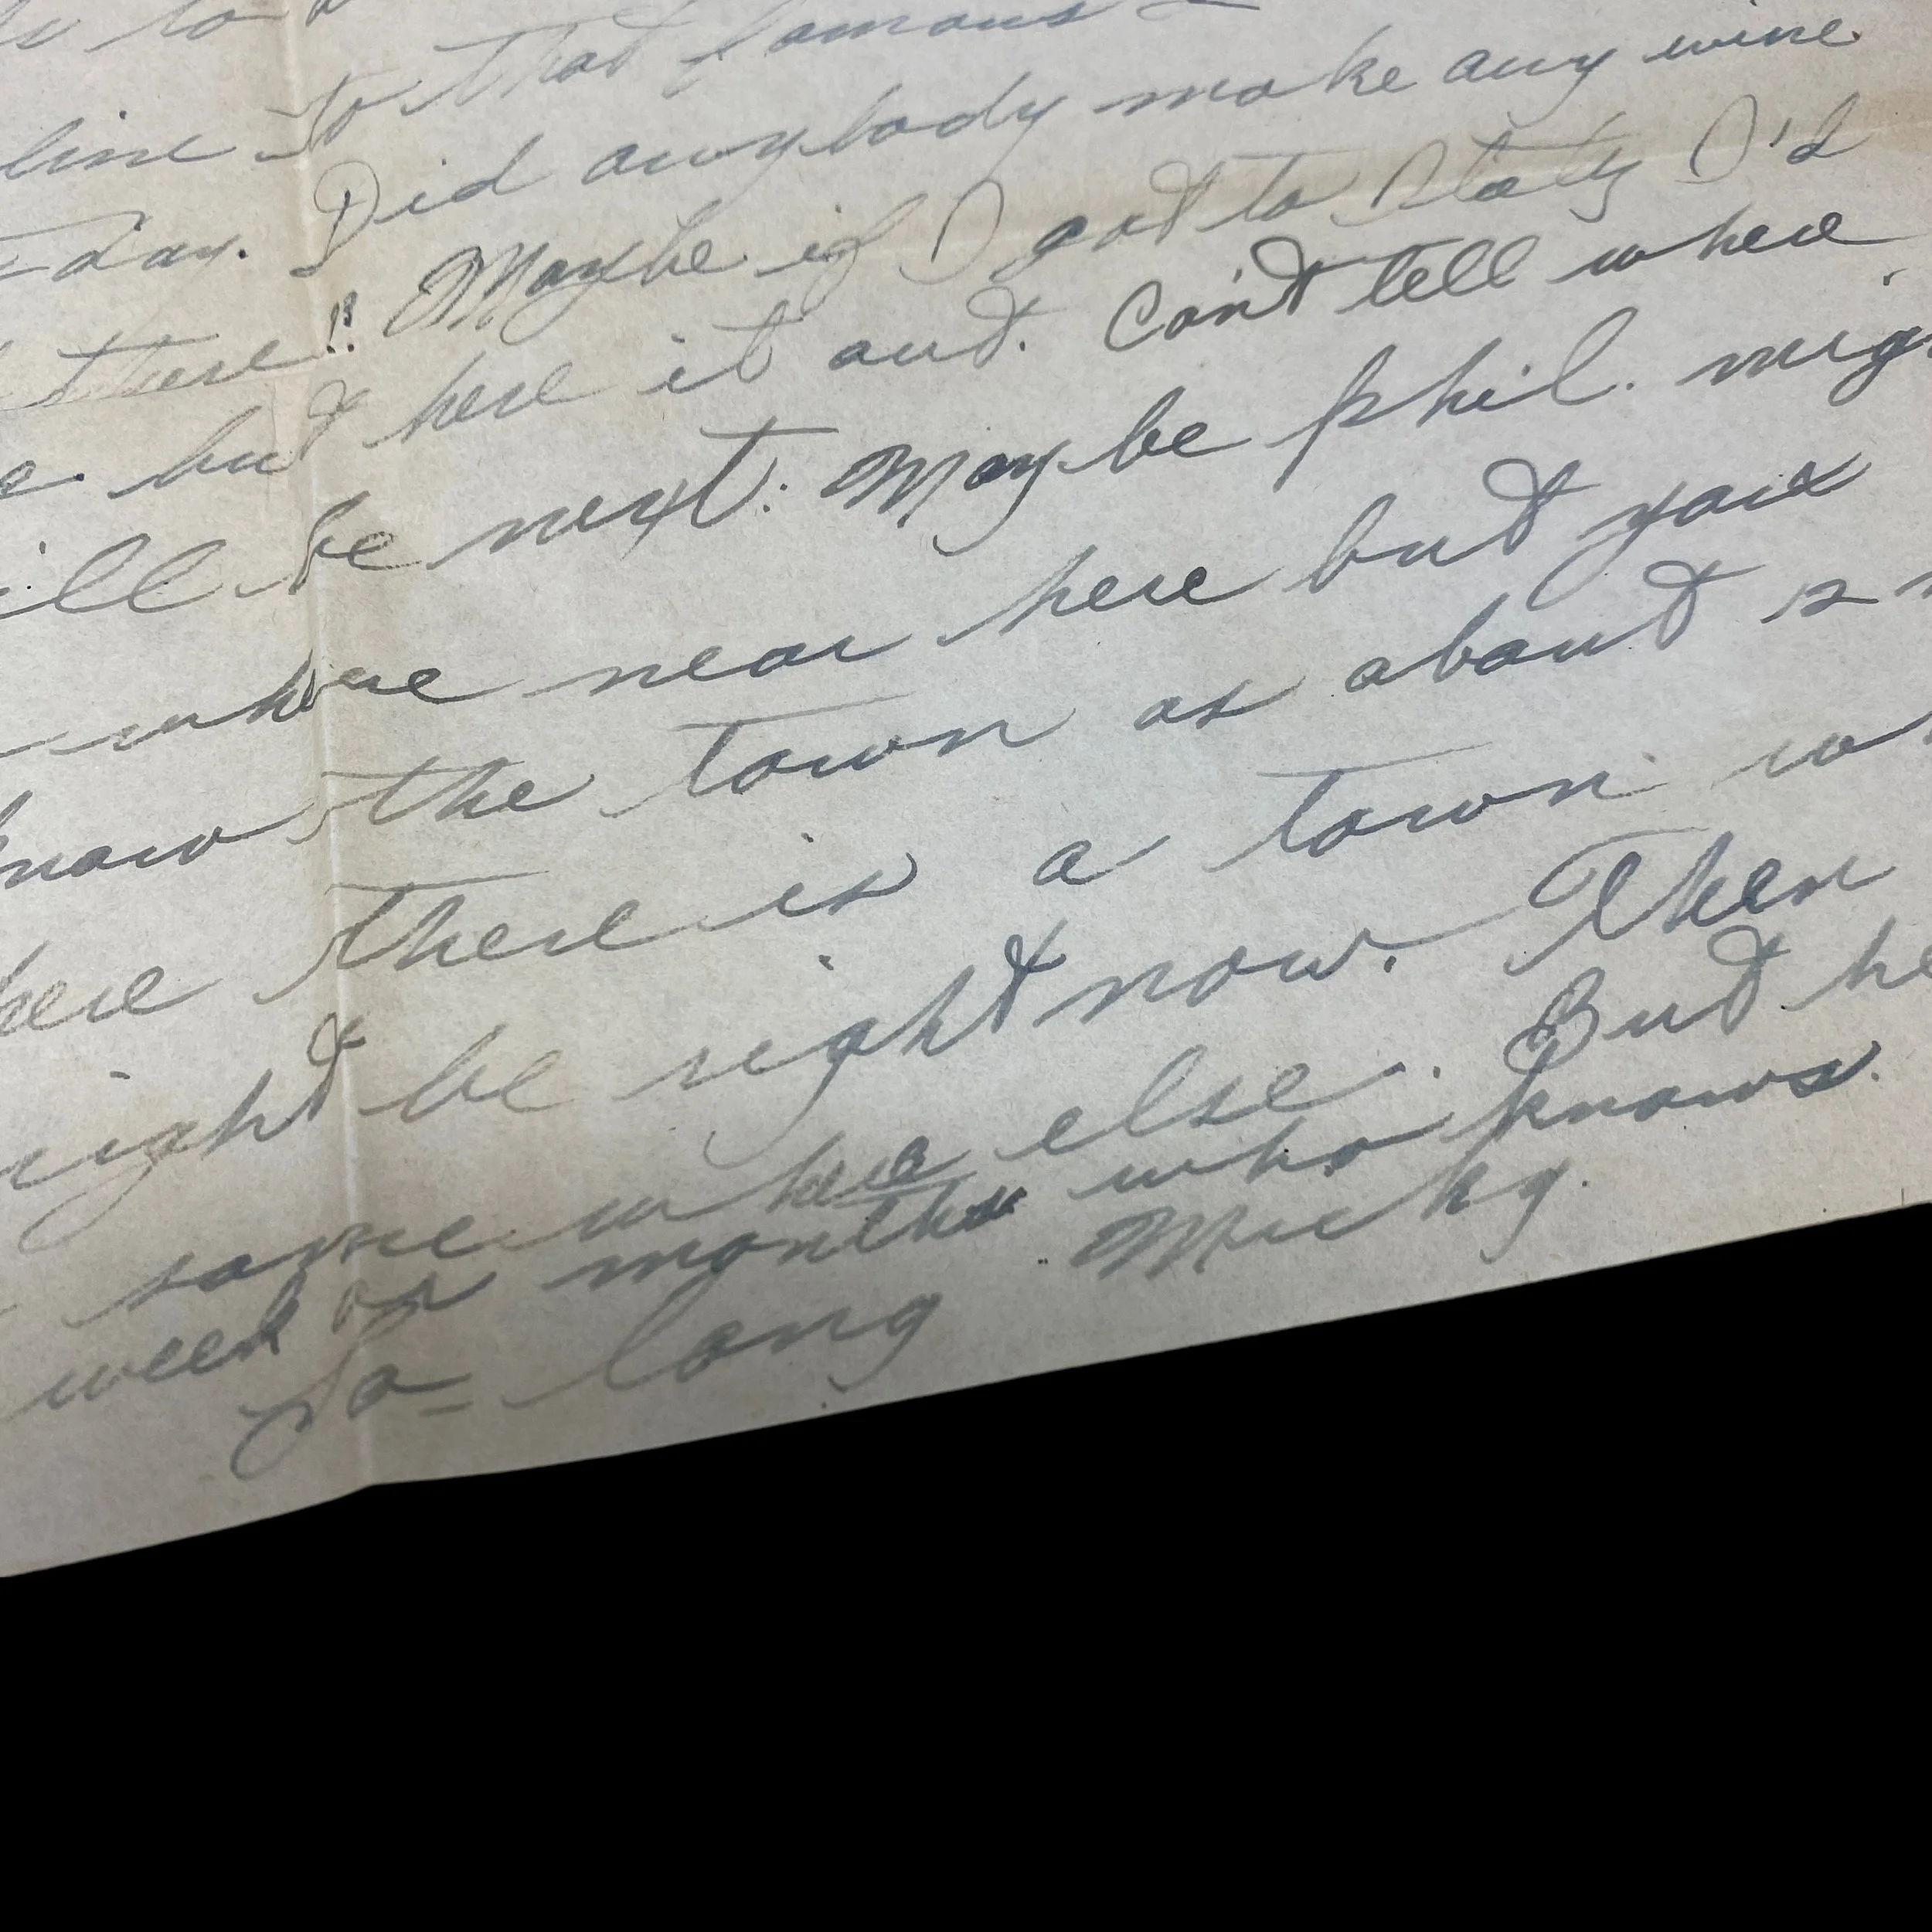 to
line to that famous
day. Did anybody make any wine
there!! Maybe if I got to Staty I'd
but here it out. Can't tell where
ill be next. Maybe Phil. mig
where near here but
know the town as about 12
here there is a town w
right be right now. Then
some where else. But he
week or months who knows.
So-long Micky.